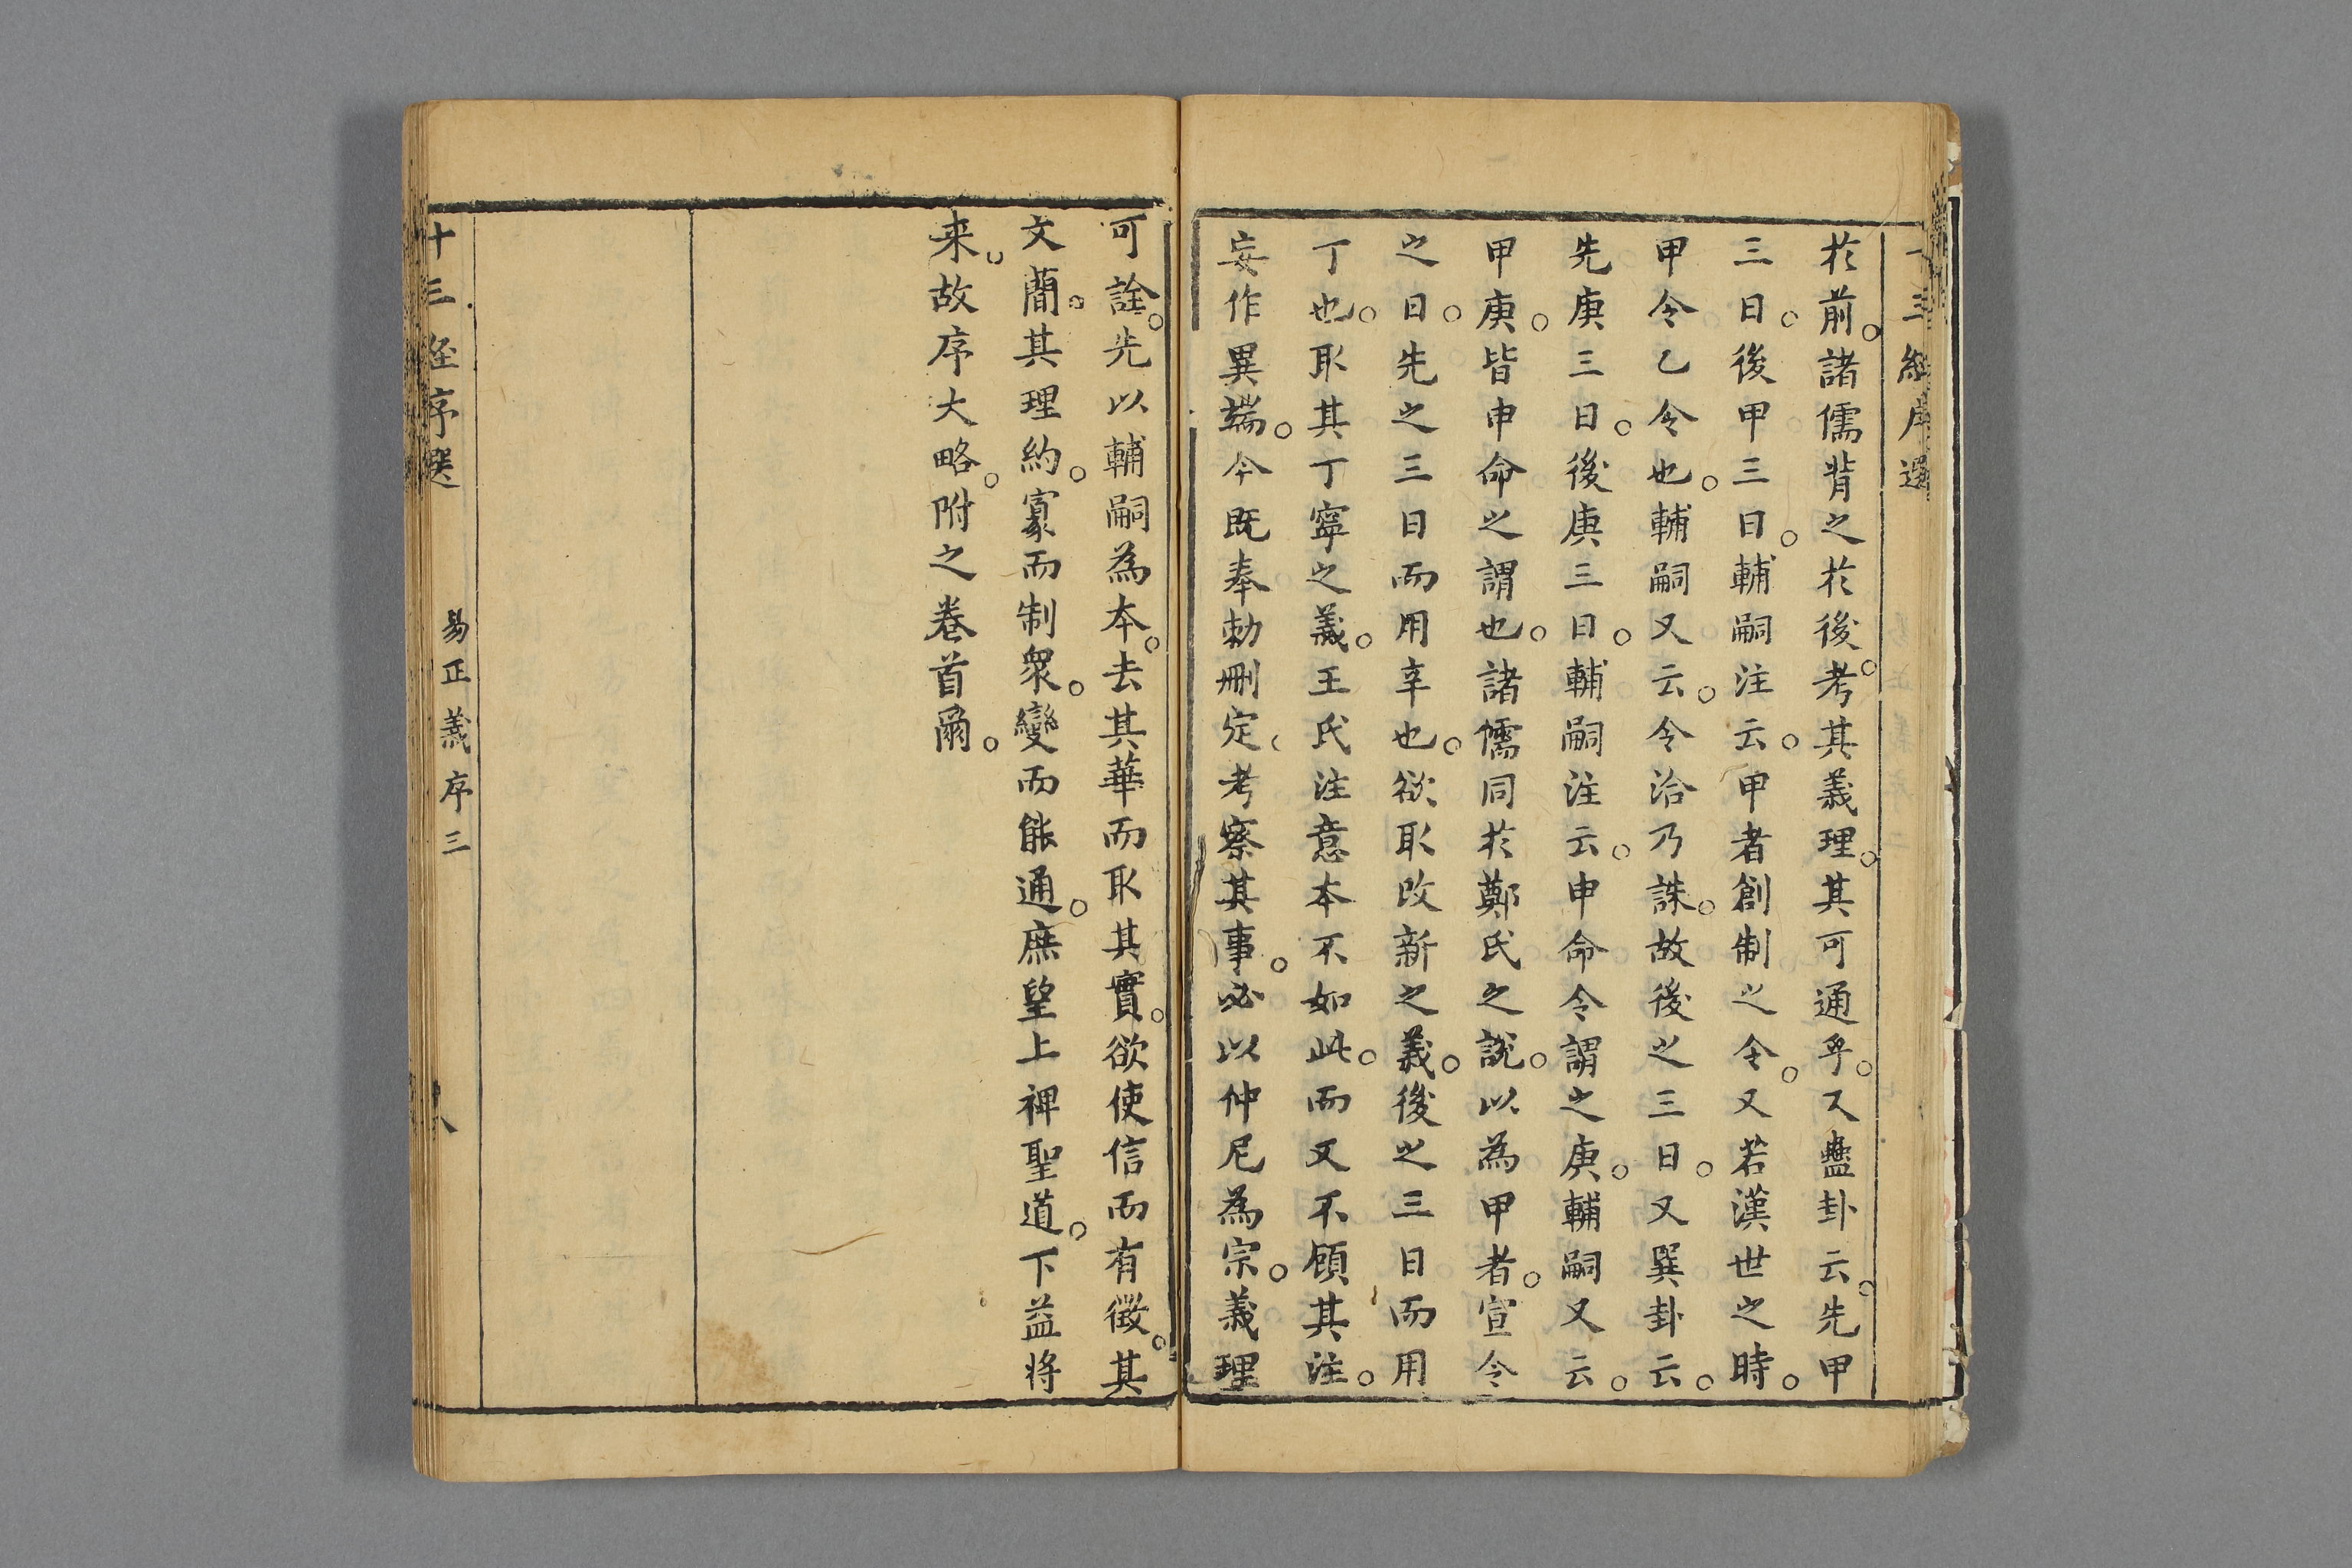 十三經序選
於前。諸儒背之於後。考其義理。其可通乎。又蠱卦云。先甲
三日。後甲三日。輔嗣注云。甲者創制之令。又若漢世之時。
甲令乙令也。輔嗣又云。令洽乃誅。故後之三日。又巽卦云。
先庚三日。後庚三日。輔嗣注云。申命令謂之庚。輔嗣又云。
甲庚。皆申命之謂也。諸儒同於鄭氏之說。以為甲者。宣令
之日。先之三日而用辛也。欲取改新之義。後之三日而用
丁也。取其丁寧之義。王氏注意本不如此。而又不顧其注。
妄作異端。今既奉勅刪定。考察其事。必以仲尼為宗。義理
可詮。先以輔嗣為本。去其華而取其實。欲使信而有徵。其
文簡。其理約。寡而制衆。變而能通。庶望上裨聖道。下益將
来。故序大略。附之卷首爾。
十三経序選 易正義序 三